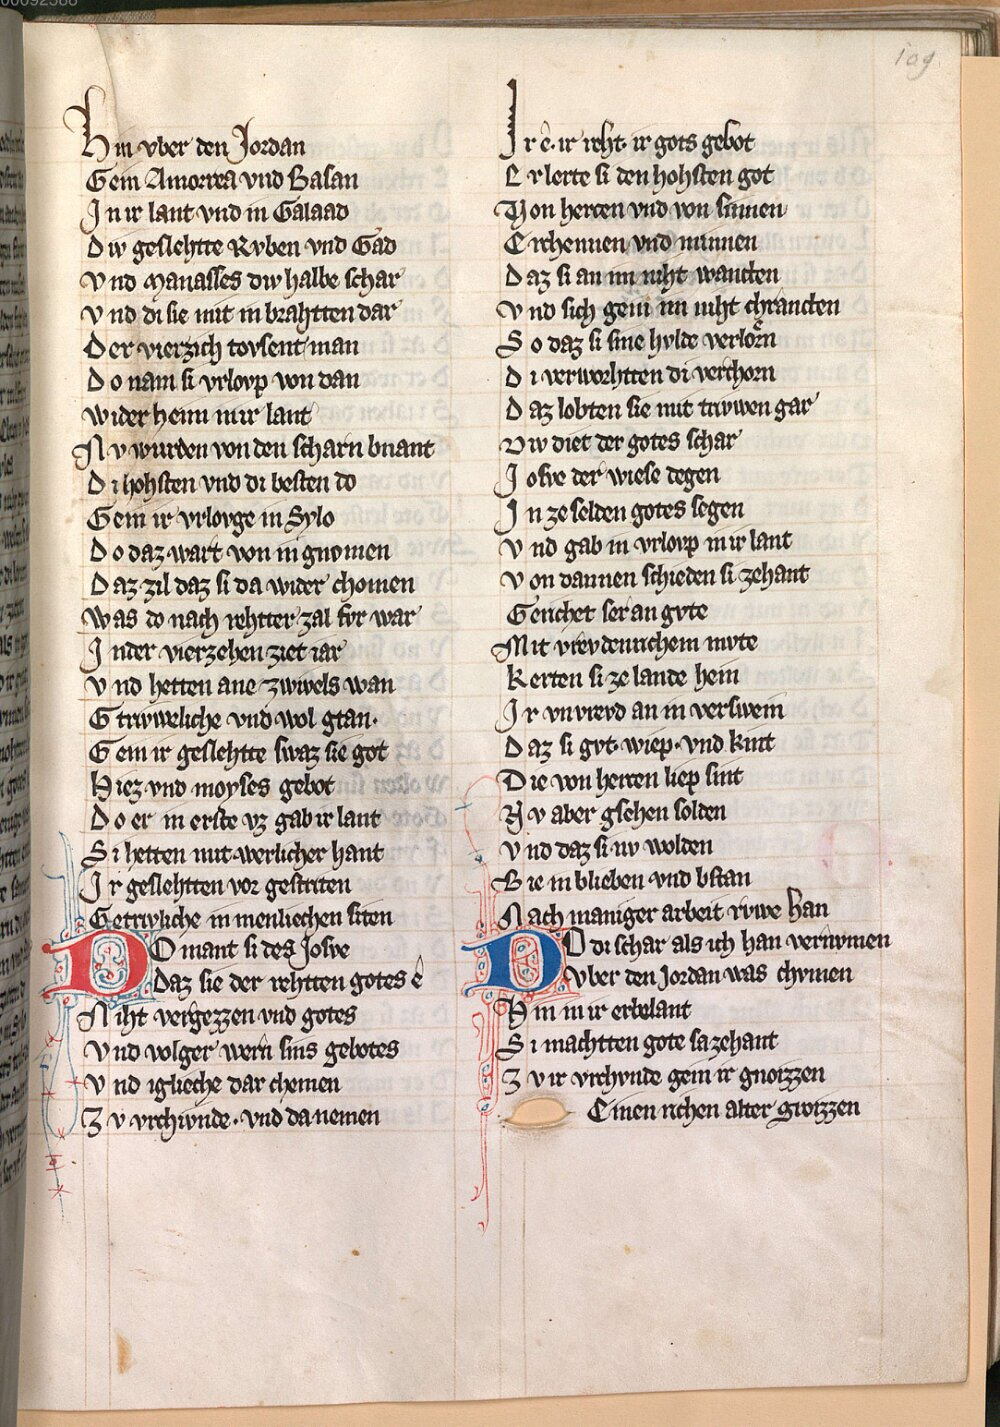 109
Hin vber den Jordan
Gein Amorrea vnd Basan
In ir lant vnd in Galaad
Div geslehtte Rvben vnd Gad
Vnd Manasses div halbe schar
Vnd di sie mit in brahtten dar
Der vierzich tovsent man
Do nam si vrlovp von dan
Wider heim in ir lant
Nv wurden von den scharn bnant
Di hohsten vnd di besten do
Gein ir vrlovge in Sylo
Do daz wart von in gnomen
Daz zil daz si da wider chomen
Was do nach rehtter zal fvr war
In der vierzehen ziet iar
Vnd hetten ane zwivels wan
Gtrivweliche vnd wol gtan.
Gein ir geslehtte swaz sie got
Hiez vnd moyses gebot
Do er in erste vz gab ir lant
Si hetten mit werlicher hant
Ir geslehtten vor gestriten
Getrivliche in menliechen siten
DO mant si des Josve
Daz sie der rehtten gotes ê
Niht vergezzen vnd gotes
Vnd volger wern sins gebotes
Vnd igslieche dar chemen
Zv vrchivnde. vnd da nemen
Ir ê. ir reht. ir gots gebot
Er lerte si den hohsten got
Von hercen vnd von sinnen
Erchennen vnd minnen
Daz si an im niht wancten
Vnd sich gein im niht chrancten
So daz si sine hvlde verlorn
Di verworhtten di verchorn
Daz lobten sie mit trivwen gar
Div diet der gotes schar
Josve der wiese degen
In ze selden gotes segen
Vnd gab in vrlovp in ir lant
Von dannen schieden si zehant
Gerichet ser an gvte
Mit vrevdenrichem mvte
Kerten si ze lande hein
Ir vnvrevd an in verswein
Daz si gvt. wiep. vnd kint
Die von hercen liep sint
Nv aber gsehen solden
Vnd daz si nv wolden
Bie in blieben vnd bstan
Nach maniger arbeit rvwe han
DO di schar als ich han vernvmen
Vber den Jordan was chvmen
Hin in ir erbelant
Si machtten gote sa zehant
Zv ir vrchvnde gein ir gnoizzen
Einen richen alter groizzen